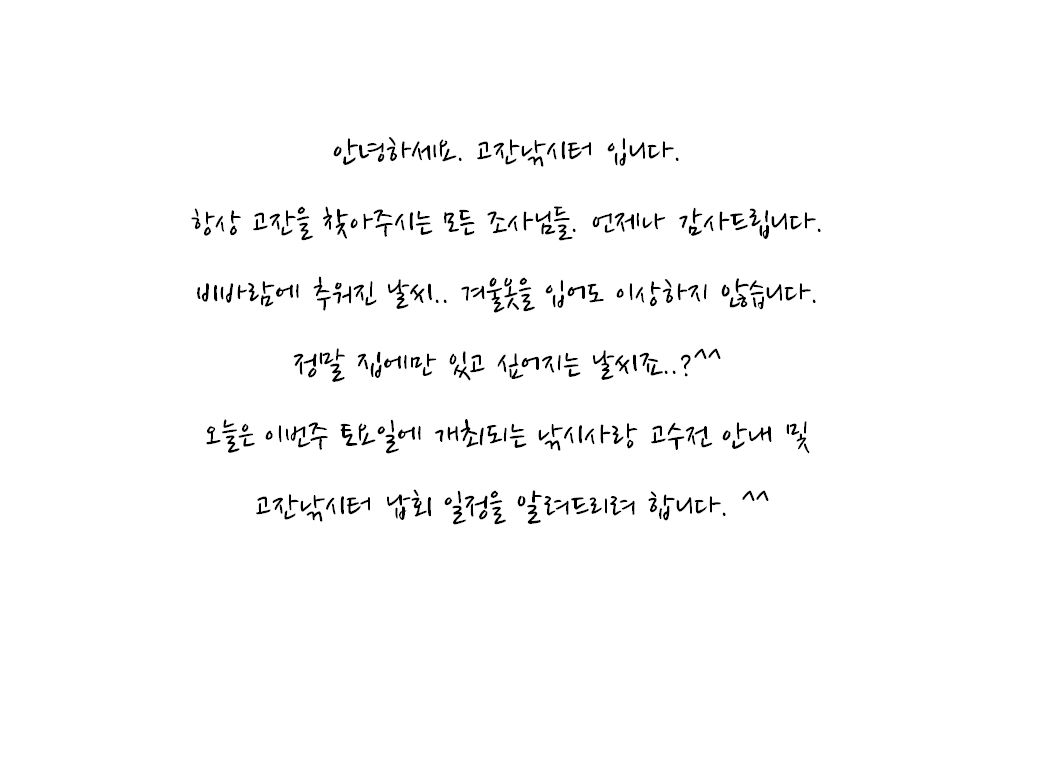 안녕하세요. 고잔낚시터 입니다.
항상 고잔을 찾아주시는 모든 조사님들. 언제나 감사드립니다.
비바람에 추워진 날씨.. 겨울옷을 입어도 이상하지 않습니다.
정말 집에만 있고 싶어지는 날씨죠..?^^
오늘은 이번주 토요일에 개최되는 낚시사랑 고수전 안내 및
고잔낚시터 납회 일정을 알려드리려 합니다. ^^